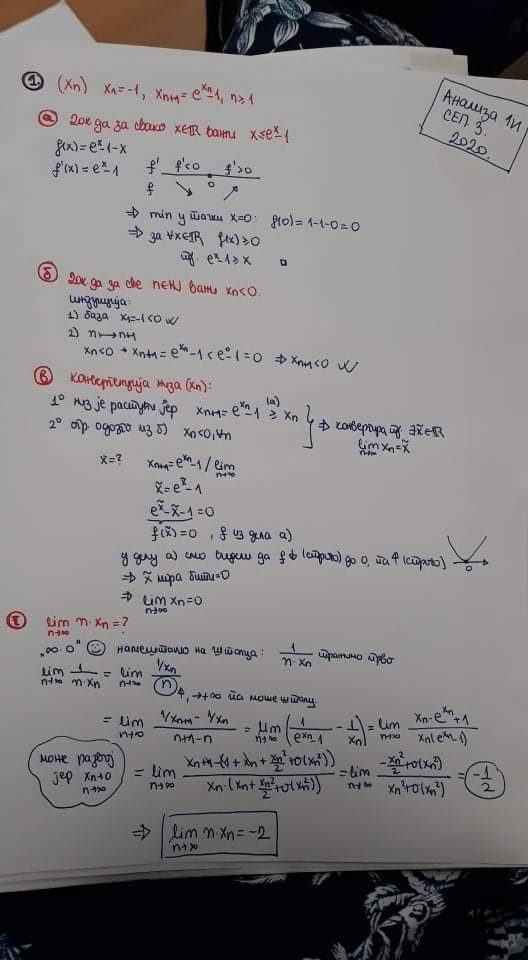 Анализа 1И
СЕП 3.
2020.
1. (xn) x1=-1, xn+1=e^xn-1, n≥1
а) Док да за свако x∈ℝ важи x≤e^x-1
f(x)=e^x-1-x
f'(x)=e^x-1 f' f'<0 f'>0
f ↘ 0 ↗
⇒ min у тачки x=0: f(0)=1-1-0=0
⇒ за ∀x∈ℝ f(x)≥0
тј. e^x-1≥x □
б) Док да за све n∈ℕ важи xn<0.
индукција:
1) база x1=-1<0 ✓
2) n↦n+1
xn<0 → xn+1=e^xn-1<e^0-1=0 ⇒ xn+1<0 ✓
в) Конвергенција низа (xn):
1° низ је растући јер xn+1=e^xn-1 ≥(а) xn
2° огр. одозго из б) xn<0,∀n } ⇒ конвергира тј. ∃x̃∈ℝ
lim n→∞ xn=x̃
x̃=? xn+1=e^xn-1 / lim n→∞
x̃=e^x̃-1
e^x̃-x̃-1=0
f(x̃)=0, f из дела а)
у делу а) смо видели да f ↓ (строго) до 0, па ↑ (строго) 0
⇒ x̃ мора бити=0
⇒ lim n→∞ xn=0
г) lim n→∞ n·xn=?
"∞·0" намештамо на Штолца: 1/(n·xn) тражимо прво
lim n→∞ 1/(n·xn) = lim n→∞ (1/xn)/n
↑, →+∞ па може Штолц
= lim n→∞ (1/xn+1 - 1/xn)/(n+1-n) = lim n→∞ (1/(e^xn-1) - 1/xn) = lim n→∞ (xn-e^xn+1)/(xn(e^xn-1))
може развој
јер xn→0
n→∞
= lim n→∞ (xn+1-(1+xn+xn²/2+o(xn²)))/(xn·(xn+xn²/2+o(xn²))) = lim n→∞ (-xn²/2+o(xn²))/(xn²+o(xn²)) = -1/2
⇒ lim n→∞ n·xn=-2